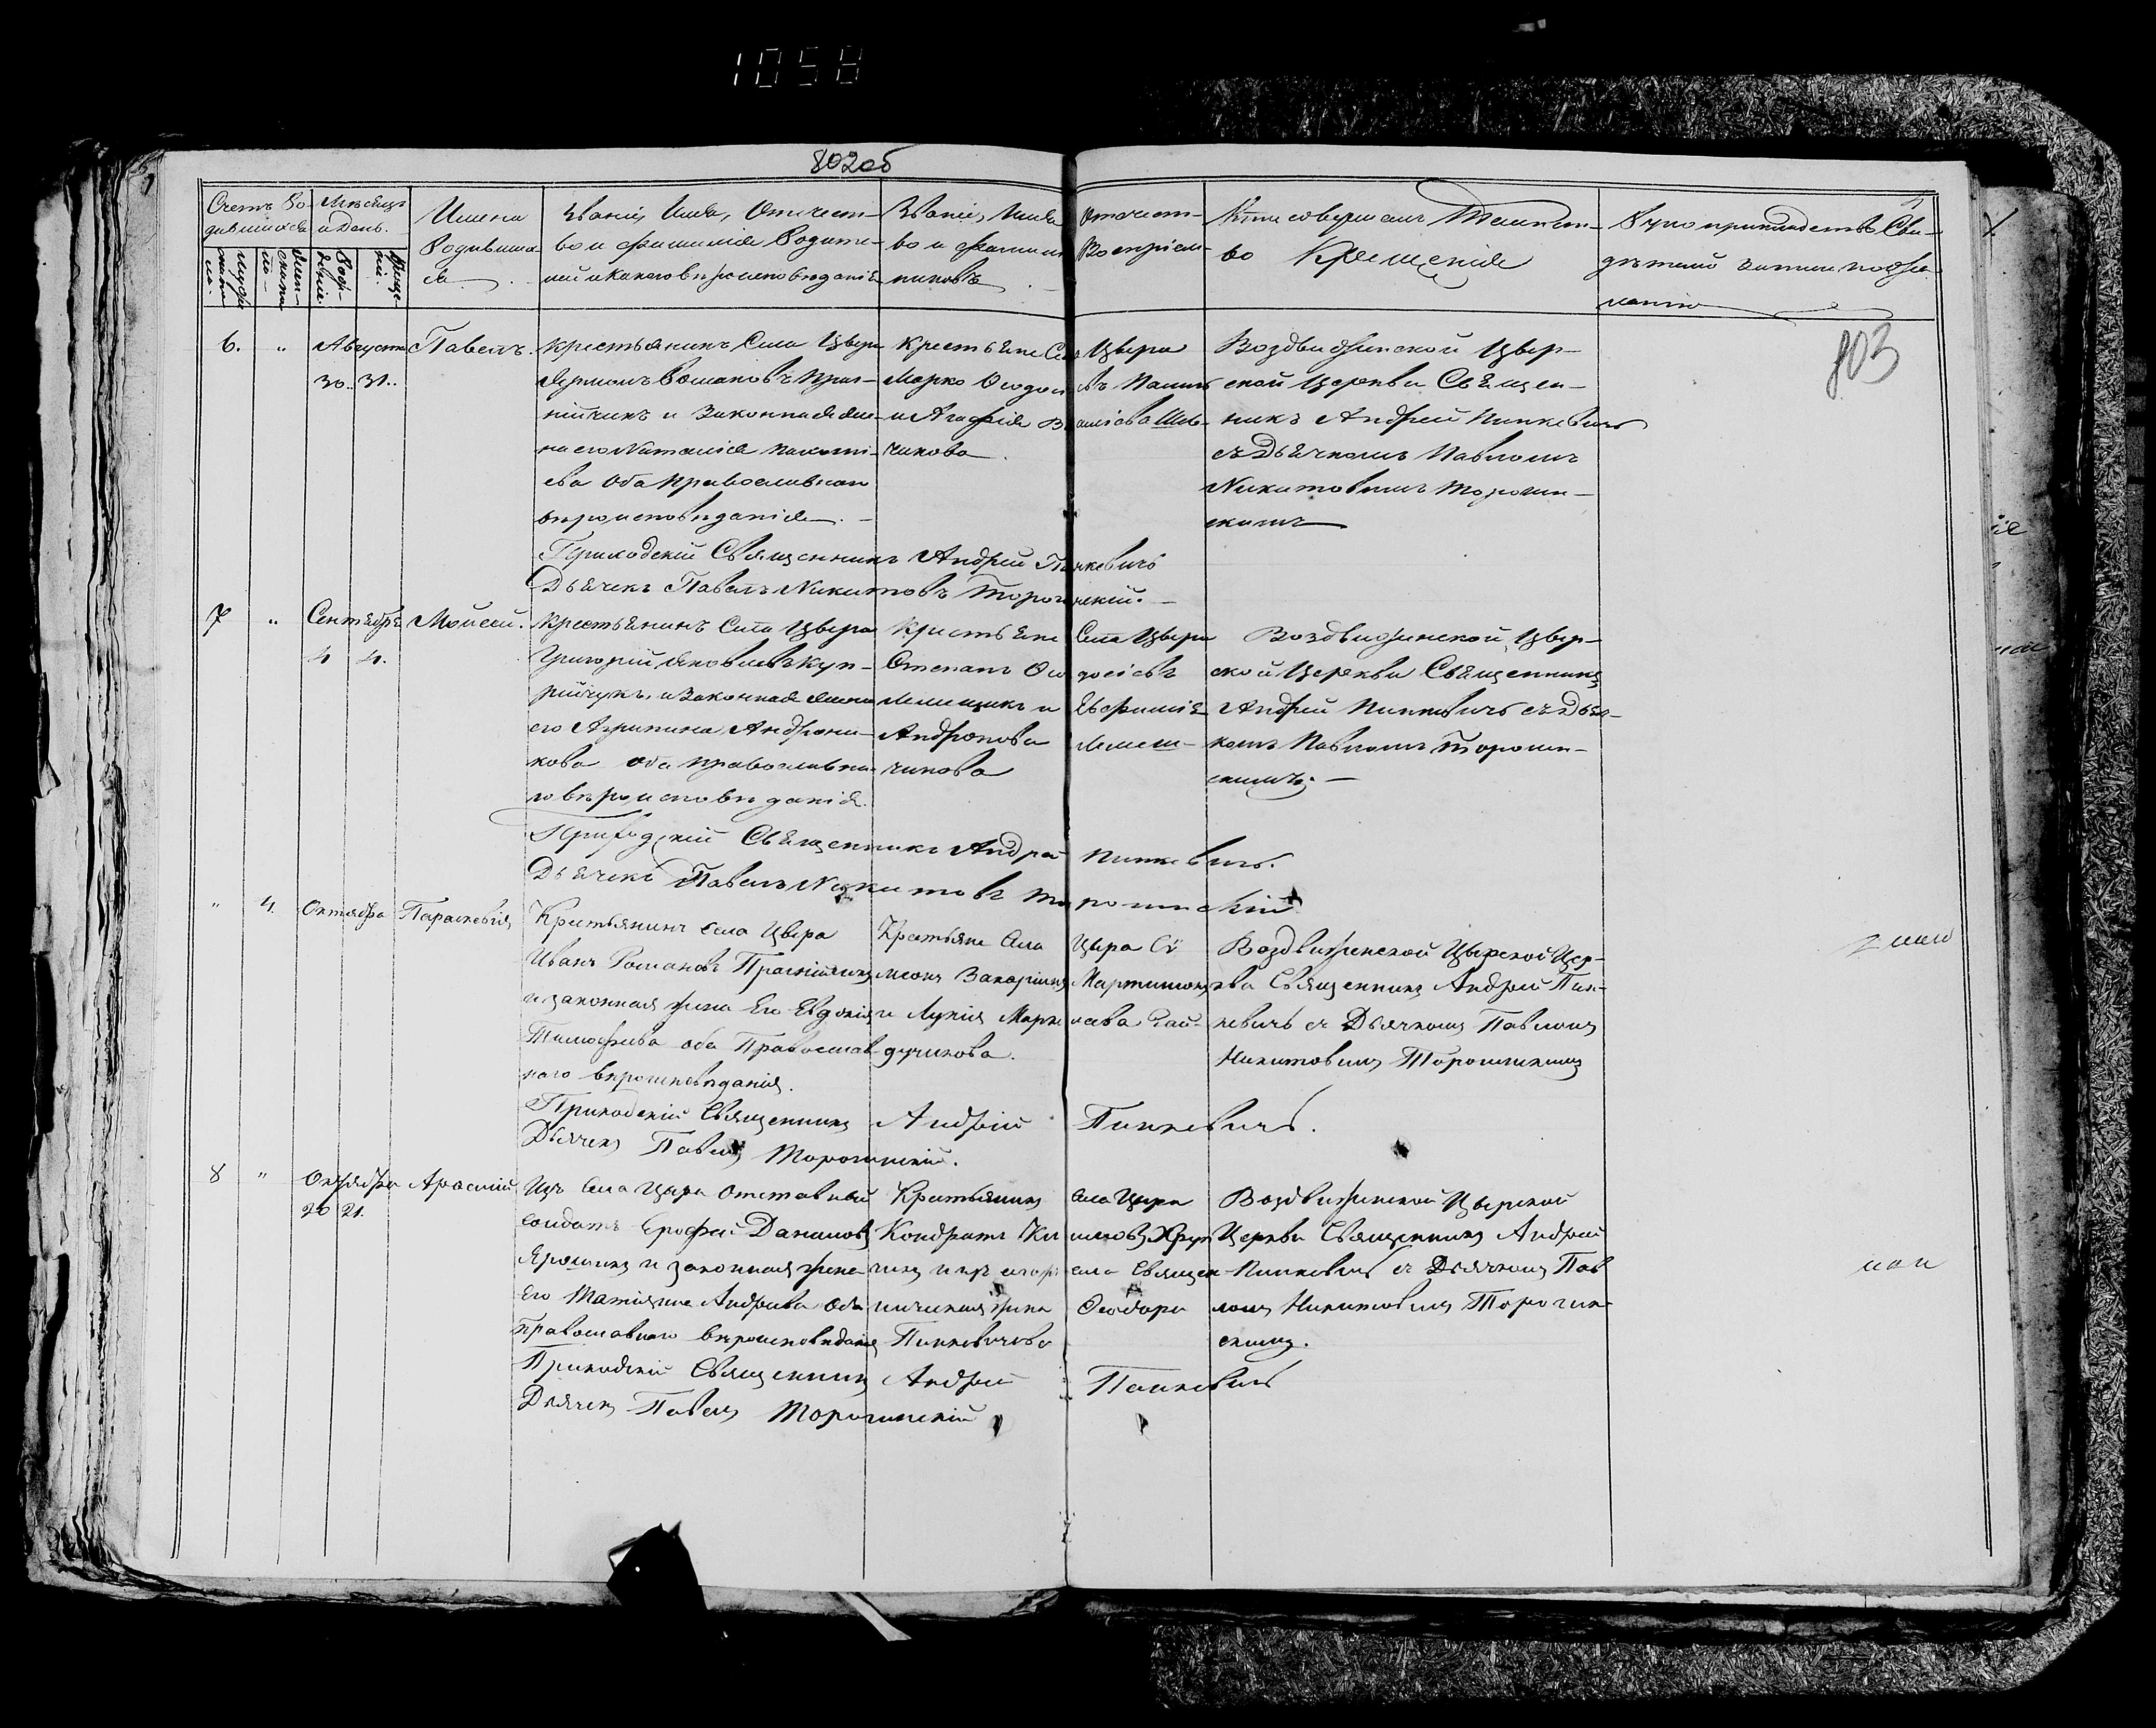 1058
802об
803
Счетъ Ро-
дившихся
Мѣсяцъ
и День.
Имена
Родивша
ся.
Званіе, Имя, Отчест-
во и фамилія Родите-
лей и какого вѣроисповѣданія
Званіе, Имя Отчест-
во и фамилія Воспріем-
никовъ
Кто совершалъ Таинст-
во Крещенія
Рукоприкладство Сви-
дѣтелей записи по жела-
нію
Муже-
ска
по-
Жен-
ска по-
ла
Рож-
денія
Креще-
нія.
6. " Августа
30. 31.
Павелъ.
Крестьянинъ Села Цвера
Романовъ
и Законная же-
на его Наталія
ева оба Православнаго
вѣроисповѣданія.
Крестьяне Села Цвера
Марко
и Агафія
чикова
Воздвиженской Цвер-
ской Церкви Священ-
никъ Андрей Пинкевичъ
съ Дьячкомъ Павломъ
Никитовымъ Торочин-
скимъ
Приходскій Священникъ Андрей Пинкевичъ
Дьячекъ Павелъ Никитовъ Торочинскій.
7 " Сентября
4 4.
Мойсей.
Крестьянинъ Села Цвера
Григорій Яковлевъ Куп-
рійчукъ, и Законная жена
его Агрипина Андрони-
кова оба православна-
го вѣроисповѣданія.
Крестьяне Села Цвера
Степанъ Ѳеодосіевъ
Лемещикъ и Евфимія
Андронова Лемеш-
чикова
Воздвиженской Цвер-
ской Церкви Священникъ
Андрей Пинкевичъ съ Дьяч-
комъ Павломъ Торочин-
скимъ.
Приходскій Священникъ Андрей Пинкевичъ.
Дьячекъ Павелъ Никитовъ Торочинскій
" 4. Октября
Параскевія
Крестьянинъ села Цвера
Иванъ Романовъ
и законная жена Его Евдокія
Тимофѣева оба Православ-
наго вѣроисповѣданія.
Крестьяне Села Цвера Си-
меонъ Захаріинъ Мартинюкъ
и Лукія Марк
дучикова.
Воздвиженской Цверской Цер-
кви Священникъ Андрей Пин-
кевичъ съ Дьячкомъ Павломъ
Никитовымъ Торочинскимъ
Приходскій Священникъ Андрей Пинкевичъ.
Дьячекъ Павелъ Торочинскій.
8 " Октября
20 21.
Изъ Села Цвера отставный
солдатъ Ерофей Даниловъ
Ярошикъ и законная жена
Его Татіяна Андреева оба
Православнаго вѣроисповѣданія
Крестьянинъ села Цвера
Кондратъ
села Священ-
ническая жена Ѳеодора
Пинкевичева
Воздвиженской Цверской
Церкви Священникъ Андрей
Пинкевичъ съ Дьячкомъ Пав-
ломъ Никитовымъ Торочин-
скимъ.
Приходскій Священникъ Андрей Пинкевичъ
Дьячекъ Павелъ Торочинскій